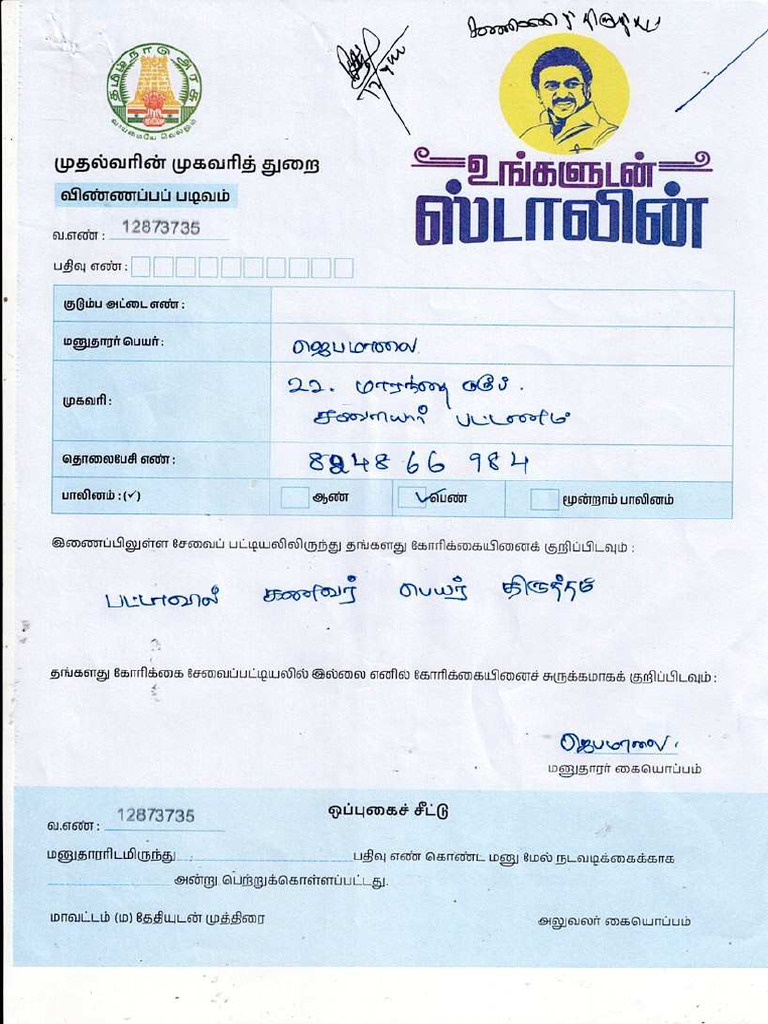 தமிழ்நாடு அரசு
வாய்மையே வெல்லும்
முதல்வரின் முகவரித் துறை
உங்களுடன்
ஸ்டாலின்
விண்ணப்பப் படிவம்
வ.எண் : 12873735
பதிவு எண் :
குடும்ப அட்டை எண் :
மனுதாரர் பெயர் : ஜெபமாலை
முகவரி : 22. 
பட்டணம்
தொலைபேசி எண் : 8248 66 984
பாலினம் : (✓) ஆண் ✓ பெண் மூன்றாம் பாலினம்
இணைப்பிலுள்ள சேவைப் பட்டியலிலிருந்து தங்களது கோரிக்கையினைக் குறிப்பிடவும் :
பட்டாவில் கணவர் பெயர் திருத்தம்
தங்களது கோரிக்கை சேவைப்பட்டியலில் இல்லை எனில் கோரிக்கையினைச் சுருக்கமாகக் குறிப்பிடவும் :
ஜெபமாலை.
மனுதாரர் கையொப்பம்
ஒப்புகைச் சீட்டு
வ.எண் : 12873735
மனுதாரரிடமிருந்து பதிவு எண் கொண்ட மனு மேல் நடவடிக்கைக்காக
அன்று பெற்றுக்கொள்ளப்பட்டது.
மாவட்டம் (ம) தேதியுடன் முத்திரை
அலுவலர் கையொப்பம்